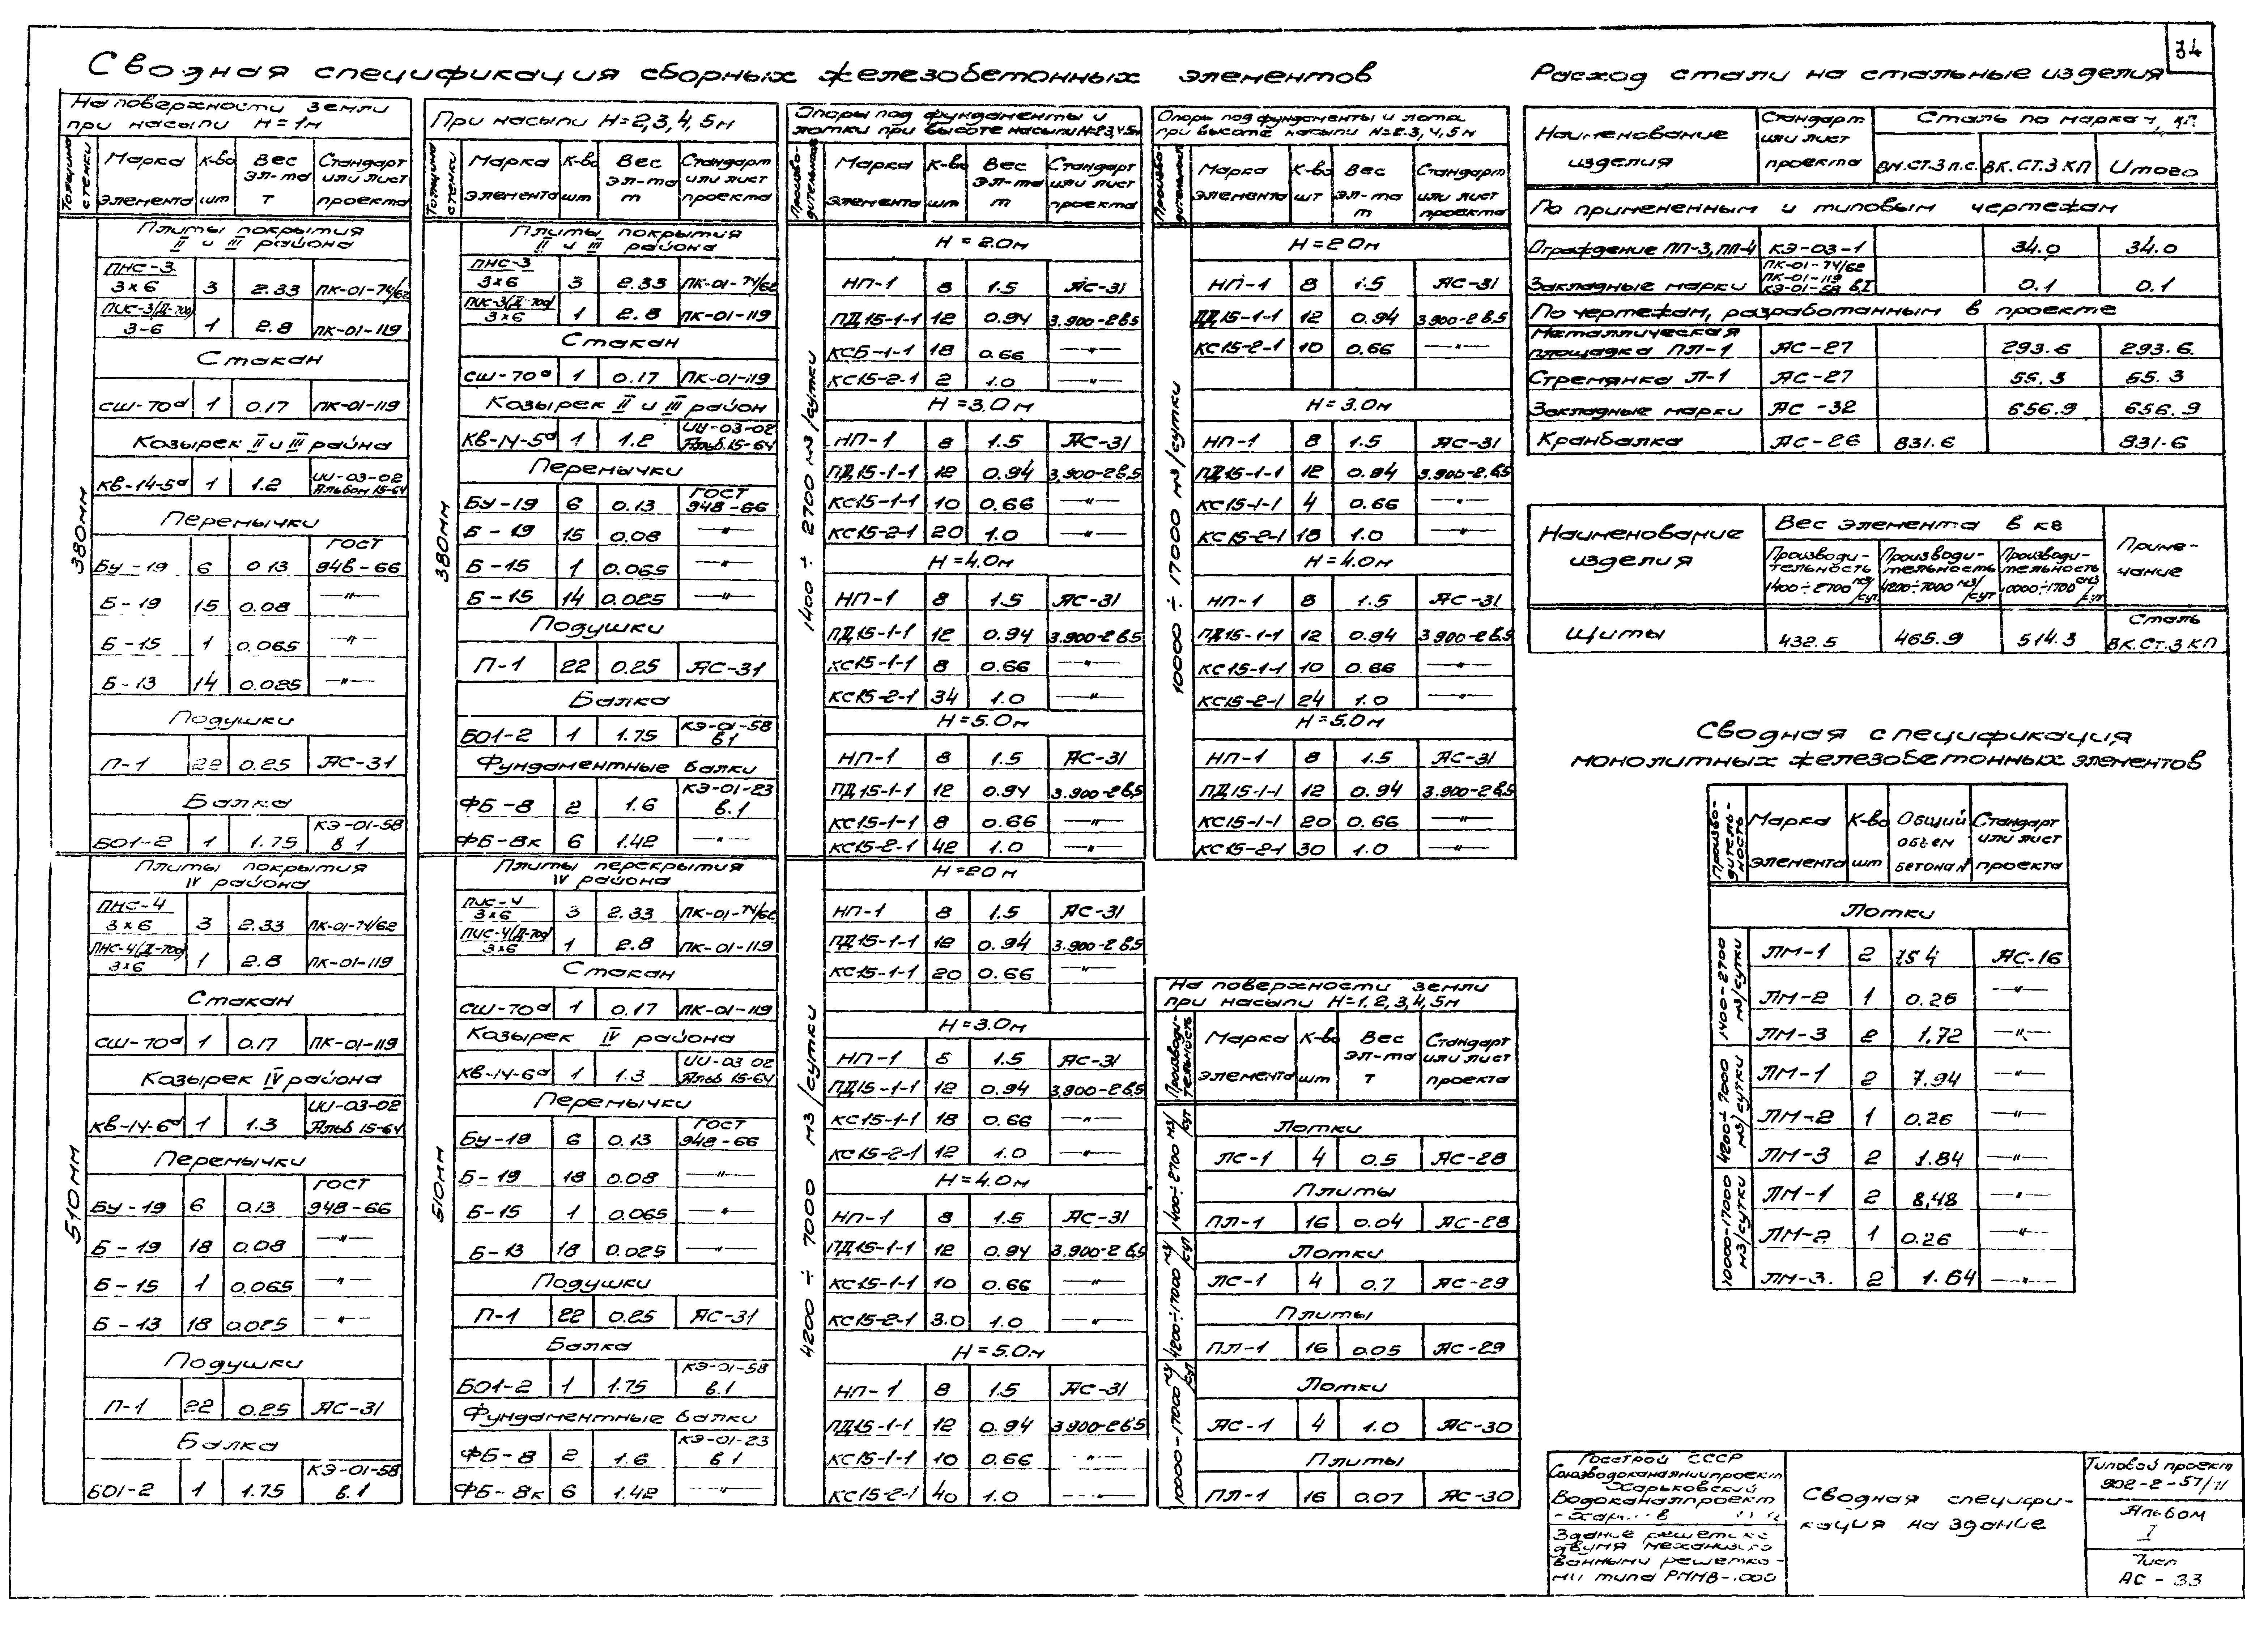 34
Сводная спецификация сборных железобетонных элементов
Расход стали на стальные изделия
На поверхности земли
при насыпи Н=1м
Толщина стенки
Марка элемента | К-во шт | Вес эл-та Т | Стандарт или лист проекта
380мм
Плиты покрытия
II и III района
ПНС-3 3х6 | 3 | 2.33 | ПК-01-74/62
ПИС-3(Д-700) 3-6 | 1 | 2.8 | ПК-01-119
Стакан
СШ-70а | 1 | 0.17 | ПК-01-119
Козырек II и III района
КВ-14-5а | 1 | 1.2 | ИИ-03-02 Альбом 15-64
Перемычки
БУ-19 | 6 | 0.13 | ГОСТ 948-66
Б-19 | 15 | 0.08 | —"—
Б-15 | 1 | 0.065 | —"—
Б-13 | 14 | 0.025 | —"—
Подушки
П-1 | 22 | 0.25 | АС-31
Балка
БО1-2 | 1 | 1.75 | КЭ-01-58 в 1
510мм
Плиты покрытия
IV района
ПНС-4 3х6 | 3 | 2.33 | ПК-01-74/62
ПНС-4(Д-700) 3х6 | 1 | 2.8 | ПК-01-119
Стакан
СШ-70а | 1 | 0.17 | ПК-01-119
Козырек IV района
КВ-14-6а | 1 | 1.3 | ИИ-03-02 Альб 15-64
Перемычки
БУ-19 | 6 | 0.13 | ГОСТ 948-66
Б-19 | 18 | 0.08 | —"—
Б-15 | 1 | 0.065 | —"—
Б-13 | 18 | 0.025 | —"—
Подушки
П-1 | 22 | 0.25 | АС-31
Балка
БО1-2 | 1 | 1.75 | КЭ-01-58 в.1
При насыпи Н=2,3,4,5м
Толщина стенки
Марка элемента | К-во шт | Вес эл-та т | Стандарт или лист проекта
380мм
Плиты покрытия
II и III района
ПНС-3 3х6 | 3 | 2.33 | ПК-01-74/62
ПИС-3(Д-700) 3х6 | 1 | 2.8 | ПК-01-119
Стакан
СШ-70а | 1 | 0.17 | ПК-01-119
Козырек II и III район
КВ-14-5а | 1 | 1.2 | ИИ-03-02 Альб.15-64
Перемычки
БУ-19 | 6 | 0.13 | ГОСТ 948-66
Б-19 | 15 | 0.08 | —"—
Б-15 | 1 | 0.065 | —"—
Б-15 | 14 | 0.025 | —"—
Подушки
П-1 | 22 | 0.25 | АС-31
Балка
БО1-2 | 1 | 1.75 | КЭ-01-58 в1
Фундаментные балки
ФБ-8 | 2 | 1.6 | КЭ-01-23 в.1
ФБ-8к | 6 | 1.42 | —"—
510мм
Плиты перекрытия
IV района
ПИС-4 3х6 | 3 | 2.33 | ПК-01-74/62
ПИС-4(Д-700) 3х6 | 1 | 2.8 | ПК-01-119
Стакан
СШ-70а | 1 | 0.17 | ПК-01-119
Козырек IV района
КВ-14-6а | 1 | 1.3 | ИИ-03 02 Альб 15-64
Перемычки
БУ-19 | 6 | 0.13 | ГОСТ 948-66
Б-19 | 18 | 0.08 | —"—
Б-15 | 1 | 0.065 | —"—
Б-13 | 18 | 0.025 | —"—
Подушки
П-1 | 22 | 0.25 | АС-31
Балка
БО1-2 | 1 | 1.75 | КЭ-01-58 в.1
Фундаментные балки
ФБ-8 | 2 | 1.6 | КЭ-01-23 в 1
ФБ-8к | 6 | 1.42 | —"—
Опоры под фундаменты и
лотки при высоте насыпи Н=2,3,4,5м
Производительность
Марка элемента | К-во шт | Вес эл-та т | Стандарт или лист проекта
1400 ÷ 2700 м3/сутки
Н=2.0м
НП-1 | 8 | 1.5 | АС-31
ПД15-1-1 | 12 | 0.94 | 3.900-2 в.5
КСБ-1-1 | 18 | 0.66 | —"—
КС15-2-1 | 2 | 1.0 | —"—
Н=3.0м
НП-1 | 8 | 1.5 | АС-31
ПД15-1-1 | 12 | 0.94 | 3.900-2 в.5
КС15-1-1 | 10 | 0.66 | —"—
КС15-2-1 | 20 | 1.0 | —"—
Н=4.0м
НП-1 | 8 | 1.5 | АС-31
ПД15-1-1 | 12 | 0.94 | 3.900-2 в.5
КС15-1-1 | 8 | 0.66 | —"—
КС15-2-1 | 34 | 1.0 | —"—
Н=5.0м
НП-1 | 8 | 1.5 | АС-31
ПД15-1-1 | 12 | 0.94 | 3.900-2 в.5
КС15-1-1 | 8 | 0.66 | —"—
КС15-2-1 | 42 | 1.0 | —"—
4200 ÷ 7000 м3/сутки
Н=2.0м
НП-1 | 8 | 1.5 | АС-31
ПД15-1-1 | 12 | 0.94 | 3.900-2 в.5
КС15-1-1 | 20 | 0.66 | —"—
Н=3.0м
НП-1 | 8 | 1.5 | АС-31
ПД15-1-1 | 12 | 0.94 | 3.900-2 в.5
КС15-1-1 | 18 | 0.66 | —"—
КС15-2-1 | 12 | 1.0 | —"—
Н=4.0м
НП-1 | 8 | 1.5 | АС-31
ПД15-1-1 | 12 | 0.94 | 3.900-2 в.5
КС15-1-1 | 10 | 0.66 | —"—
КС15-2-1 | 3.0 | 1.0 | —"—
Н=5.0м
НП-1 | 8 | 1.5 | АС-31
ПД15-1-1 | 12 | 0.94 | 3.900-2 в.5
КС15-1-1 | 10 | 0.66 | —"—
КС15-2-1 | 40 | 1.0 | —"—
Опоры под фундаменты и лотка
при высоте насыпи Н=2.3,4,5м
Производительность
Марка элемента | К-во шт | Вес эл-та т | Стандарт или лист проекта
10000 ÷ 17000 м3/сутки
Н=2.0м
НП-1 | 8 | 1.5 | АС-31
ПД15-1-1 | 12 | 0.94 | 3.900-2 в.5
КС15-2-1 | 10 | 0.66 | —"—
Н=3.0м
НП-1 | 8 | 1.5 | АС-31
ПД15-1-1 | 12 | 0.94 | 3.900-2.в.5
КС15-1-1 | 4 | 0.66 | —"—
КС15-2-1 | 18 | 1.0 | —"—
Н=4.0м
НП-1 | 8 | 1.5 | АС-31
ПД15-1-1 | 12 | 0.94 | 3.900-2 в.5
КС15-1-1 | 10 | 0.66 | —"—
КС15-2-1 | 24 | 1.0 | —"—
Н=5.0м
НП-1 | 8 | 1.5 | АС-31
ПД15-1-1 | 12 | 0.94 | 3.900-2 в.5
КС15-1-1 | 20 | 0.66 | —"—
КС15-2-1 | 30 | 1.0 | —"—
На поверхности земли
при насыпи Н=1.2,3,4,5м
Производительность
Марка элемента | К-во шт | Вес эл-та т | Стандарт или лист проекта
1400÷2700 м3/сут
Лотки
ЛС-1 | 4 | 0.5 | АС-28
Плиты
ПЛ-1 | 16 | 0.04 | АС-28
4200÷17000 м3/сут
Лотки
ЛС-1 | 4 | 0.7 | АС-29
Плиты
ПЛ-1 | 16 | 0.05 | АС-29
10000-17000 м3/сут
Лотки
ЛС-1 | 4 | 1.0 | АС-30
Плиты
ПЛ-1 | 16 | 0.07 | АС-30
Наименование изделия | Стандарт или лист проекта | Сталь по маркам, кг.
ВМ.СТ.3 п.с. | ВК.СТ.3 КП | Итого
По примененным и типовым чертежам
Ограждение ПП-3, ПЛ-4 | КЭ-03-1 | 34.0 | 34.0
Закладные марки | ПК-01-74/62 ПК-01-119 КЭ-01-58 в.I | 0.1 | 0.1
По чертежам, разработанным в проекте
Металлическая площадка ПЛ-1 | АС-27 | 293.6 | 293.6
Стремянка Л-1 | АС-27 | 55.3 | 55.3
Закладные марки | АС-32 | 656.9 | 656.9
Кранбалка | АС-26 | 831.6 | 831.6
Наименование изделия | Вес элемента в кг | Примечание
Производительность 1400÷2700 м3/сут | Производительность 4200÷7000 м3/сут | Производительность 10000÷1700 м3/сут
Щиты | 432.5 | 465.9 | 514.3 | Сталь ВК.Ст.3 КП
Сводная спецификация
монолитных железобетонных элементов
Производительность
Марка элемента | К-во шт | Общий объем бетона м3 | Стандарт или лист проекта
Лотки
1400-2700 м3/сутки
ЛМ-1 | 2 | 7.54 | АС-16
ЛМ-2 | 1 | 0.26 | —"—
ЛМ-3 | 2 | 1.72 | —"—
4200÷7000 м3/сутки
ЛМ-1 | 2 | 7.94 | —"—
ЛМ-2 | 1 | 0.26 | —"—
ЛМ-3 | 2 | 1.84 | —"—
10000-17000 м3/сутки
ЛМ-1 | 2 | 8,48 | —"—
ЛМ-2 | 1 | 0.26 | —"—
ЛМ-3. | 2 | 1.64 | —"—
Госстрой СССР
Союзводоканалниипроект
Харьковский
Водоканалпроект
Здание решеток с
двумя механизиро
ванными решетка-
ми типа РММВ-1000
Сводная специфи-
кация на здание
Типовой проект
902-2-57/71
Альбом
I
Лист
АС-33